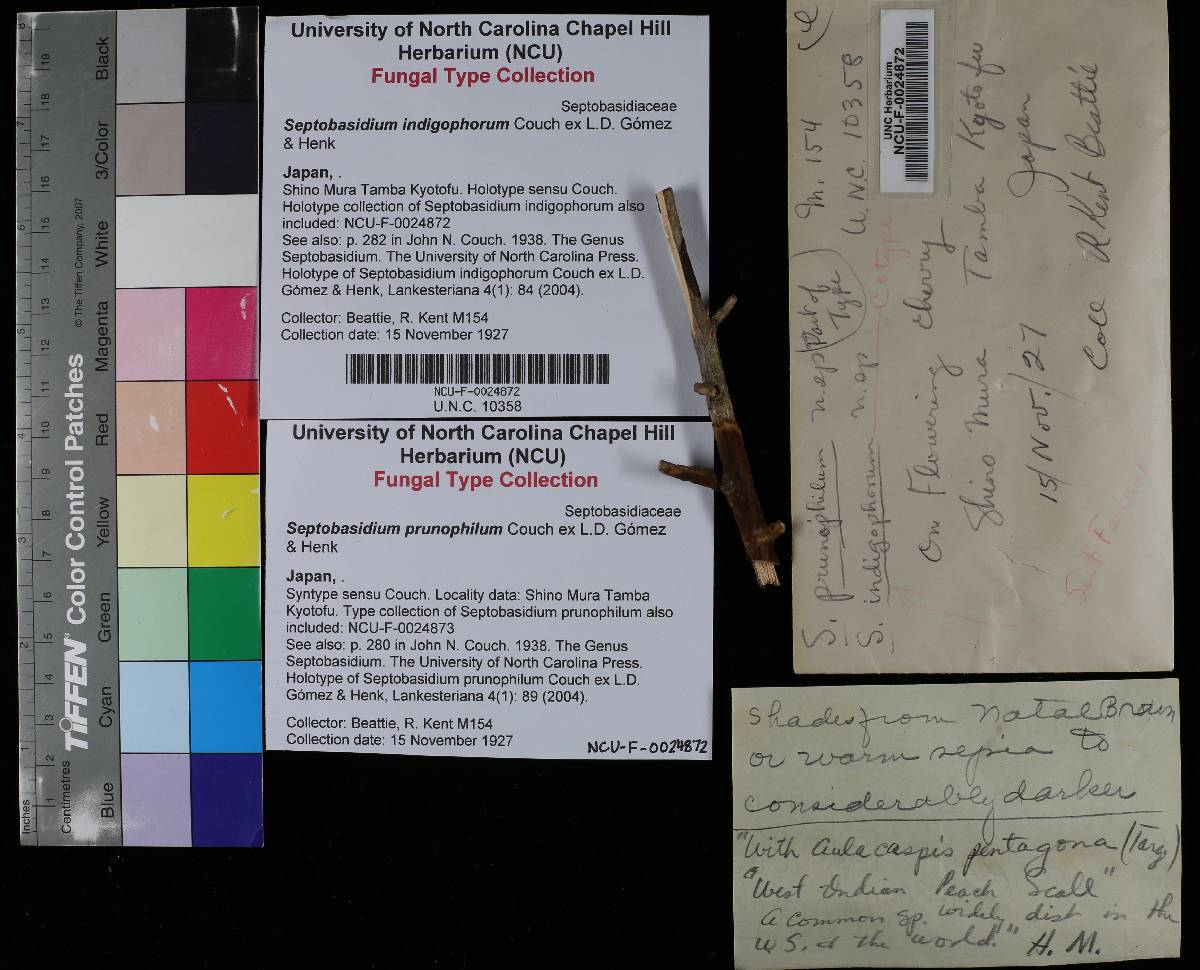 University of North Carolina Chapel Hill
Herbarium (NCU)
Fungal Type Collection
Septobasidiaceae
Septobasidium indigophorum Couch ex L.D. Gómez
& Henk
Japan, .
Shino Mura Tamba Kyotofu. Holotype sensu Couch.
Holotype collection of Septobasidium indigophorum also
included: NCU-F-0024872
See also: p. 282 in John N. Couch. 1938. The Genus
Septobasidium. The University of North Carolina Press.
Holotype of Septobasidium indigophorum Couch ex L.D.
Gómez & Henk, Lankesteriana 4(1): 84 (2004).
Collector: Beattie, R. Kent M154
Collection date: 15 November 1927
NCU-F-0024872
U.N.C. 10358
University of North Carolina Chapel Hill
Herbarium (NCU)
Fungal Type Collection
Septobasidiaceae
Septobasidium prunophilum Couch ex L.D. Gómez
& Henk
Japan, .
Syntype sensu Couch. Locality data: Shino Mura Tamba
Kyotofu. Type collection of Septobasidium prunophilum also
included: NCU-F-0024873
See also: p. 280 in John N. Couch. 1938. The Genus
Septobasidium. The University of North Carolina Press.
Holotype of Septobasidium prunophilum Couch ex L.D.
Gómez & Henk, Lankesteriana 4(1): 89 (2004).
Collector: Beattie, R. Kent M154
Collection date: 15 November 1927
NCU-F-0024872
S. prunophilum n.sp (Part of Type) M. 154
S. indigophorum n.sp Cotype U.N.C. 10358
UNC Herbarium
NCU-F-0024872
On Flowering Cherry
Shino Mura Tamba Kyoto fu
Japan
15/Nov./27
Coll R Kent Beattie
Shades from Natal Brown
or warm sepia to
considerably darker
"With Aulacaspis pentagona (Targ.)
"West Indian Peach Scale"
A common sp. widely dist in the
U.S. & the world." H. M.
Inches
1 2 3 4 5 6 7 8
Centimetres
1 2 3 4 5 6 7 8 9 10 11 12 13 14 15 16 17 18 19
TIFFEN® Color Control Patches
© The Tiffen Company, 2007
Blue
Cyan
Green
Yellow
Red
Magenta
White
3/Color
Black